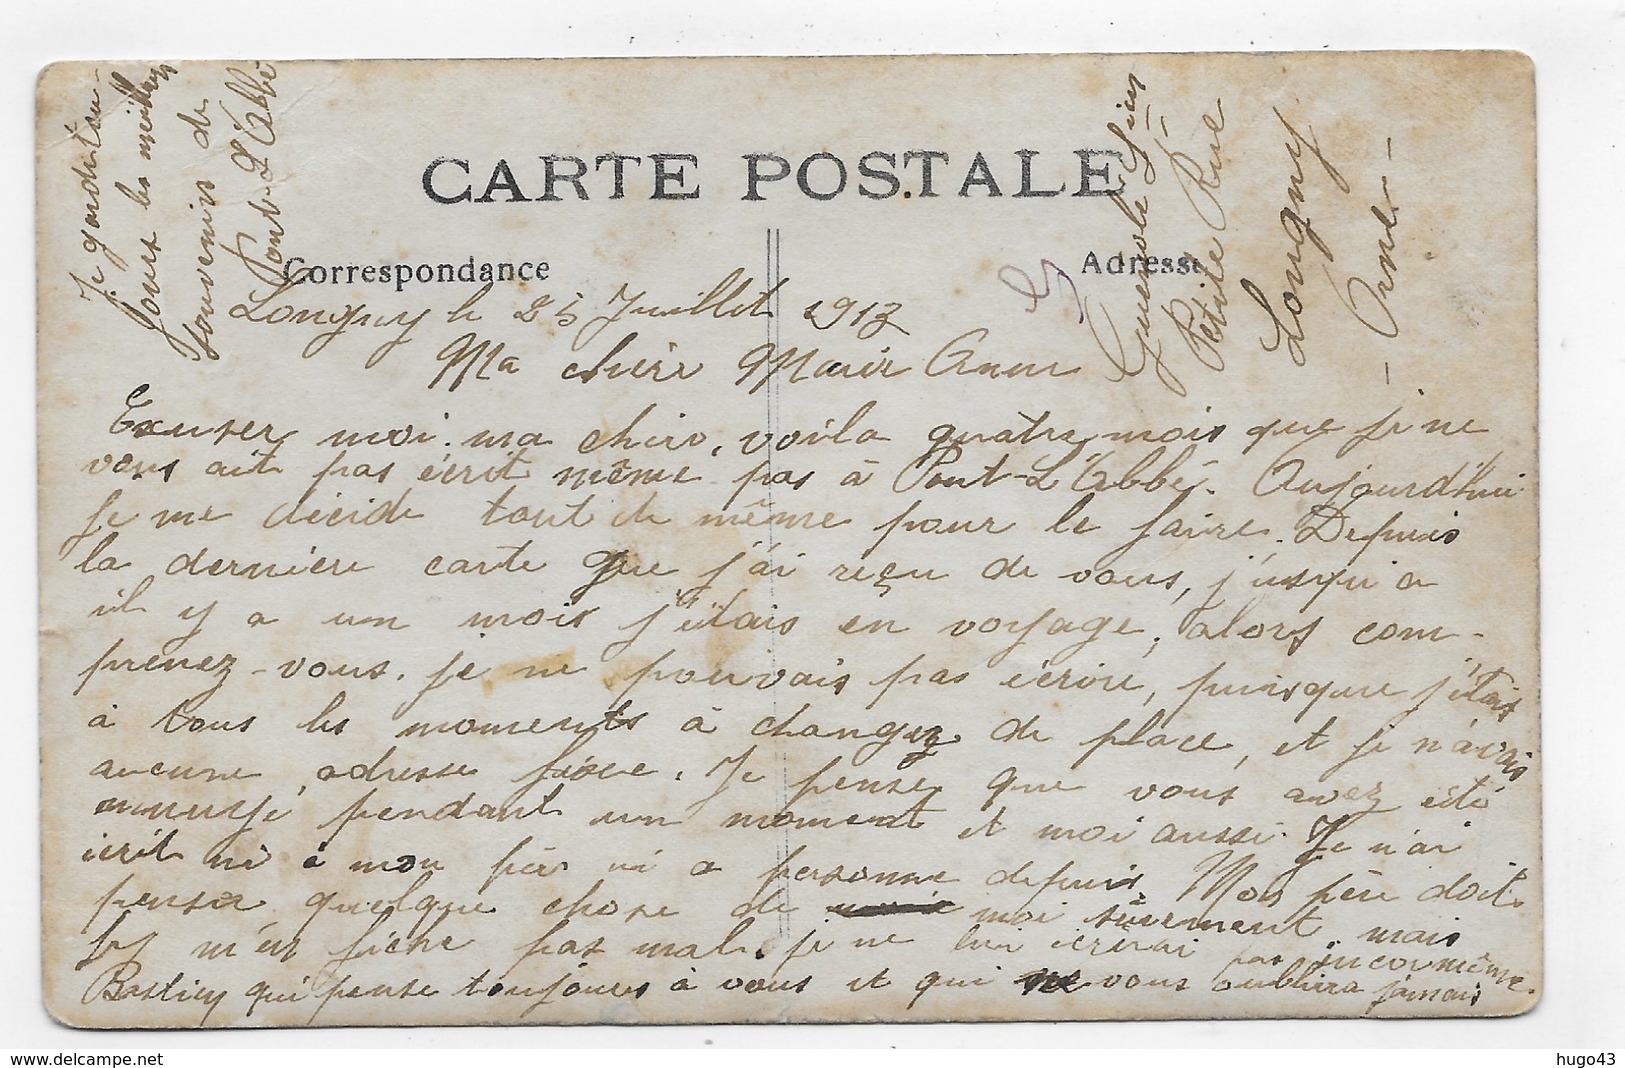 Je garde ton-
jours les meilleurs
souvenirs de
Pont-L'Abbé
CARTE POSTALE
Correspondance
Adresse
Guénolé
Petite Rue
Longny
- Orne -
Longny le 25 Juillet 1913
Ma chère Marie Anne
Excuser moi ma chère, voila quatre mois que je ne
vous ait pas écrit même pas à Pont-L'Abbé. Aujourd'hui
je me décide tout de même pour le faire. Depuis
la dernière carte que j'ai reçu de vous, jusqu'a
il y a un mois j'étais en voyage, alors com-
prenez-vous. je ne pouvais pas écrire, puisque j'étais
à tous les moments à changez de place, et je n'avais
aucune adresse fixe. Je pense que vous avez été
ennuyé pendant un moment et moi aussi. Je n'ai
écrit ni à mon père ni a personne depuis. Mon père doit
penser quelque chose de moi sûrement, mais
je m'en fiche pas mal. je ne lui écrirai pas encor même.
qui pense toujours à vous et qui ne vous oubliera jamais
delcampe.net
hugo43